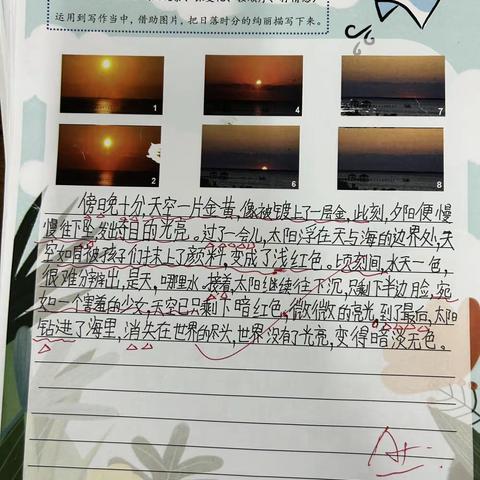 运用到写作当中，借助图片，把日落时分的绚丽描写下来。
1
4
7
2
6
8
傍晚十分，天空一片金黄，像被镀上了一层金，此刻，夕阳便慢
慢往下坠，发出夺目的光亮。过了一会儿，太阳浮在天与海的边界外，天
空如同被孩子们抹上了颜料，变成了浅红色。顷刻间，水天一色，
很难分辨出，是天，哪里水。接着，太阳继续往下沉，只剩下半边脸，宛
如一个害羞的少女，天空已只剩下暗红色，微微的亮光，到了最后，太阳
钻进了海里，消失在世界的尽头，世界没有了光亮，变得暗淡无色。
A+